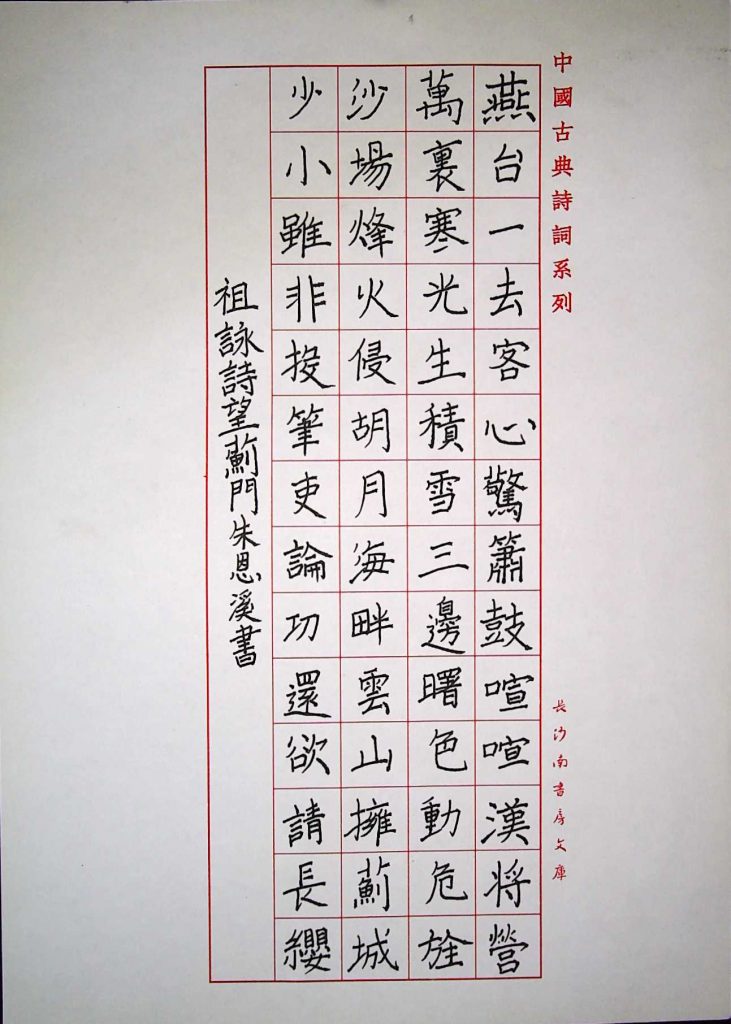 中國古典詩詞系列
燕台一去客心驚簫鼓喧喧漢将營
萬裏寒光生積雪三邊曙色動危旌
沙場烽火侵胡月海畔雲山擁薊城
少小雖非投筆吏論功還欲請長纓
祖詠詩望薊門朱恩溪書
長沙南書房文庫